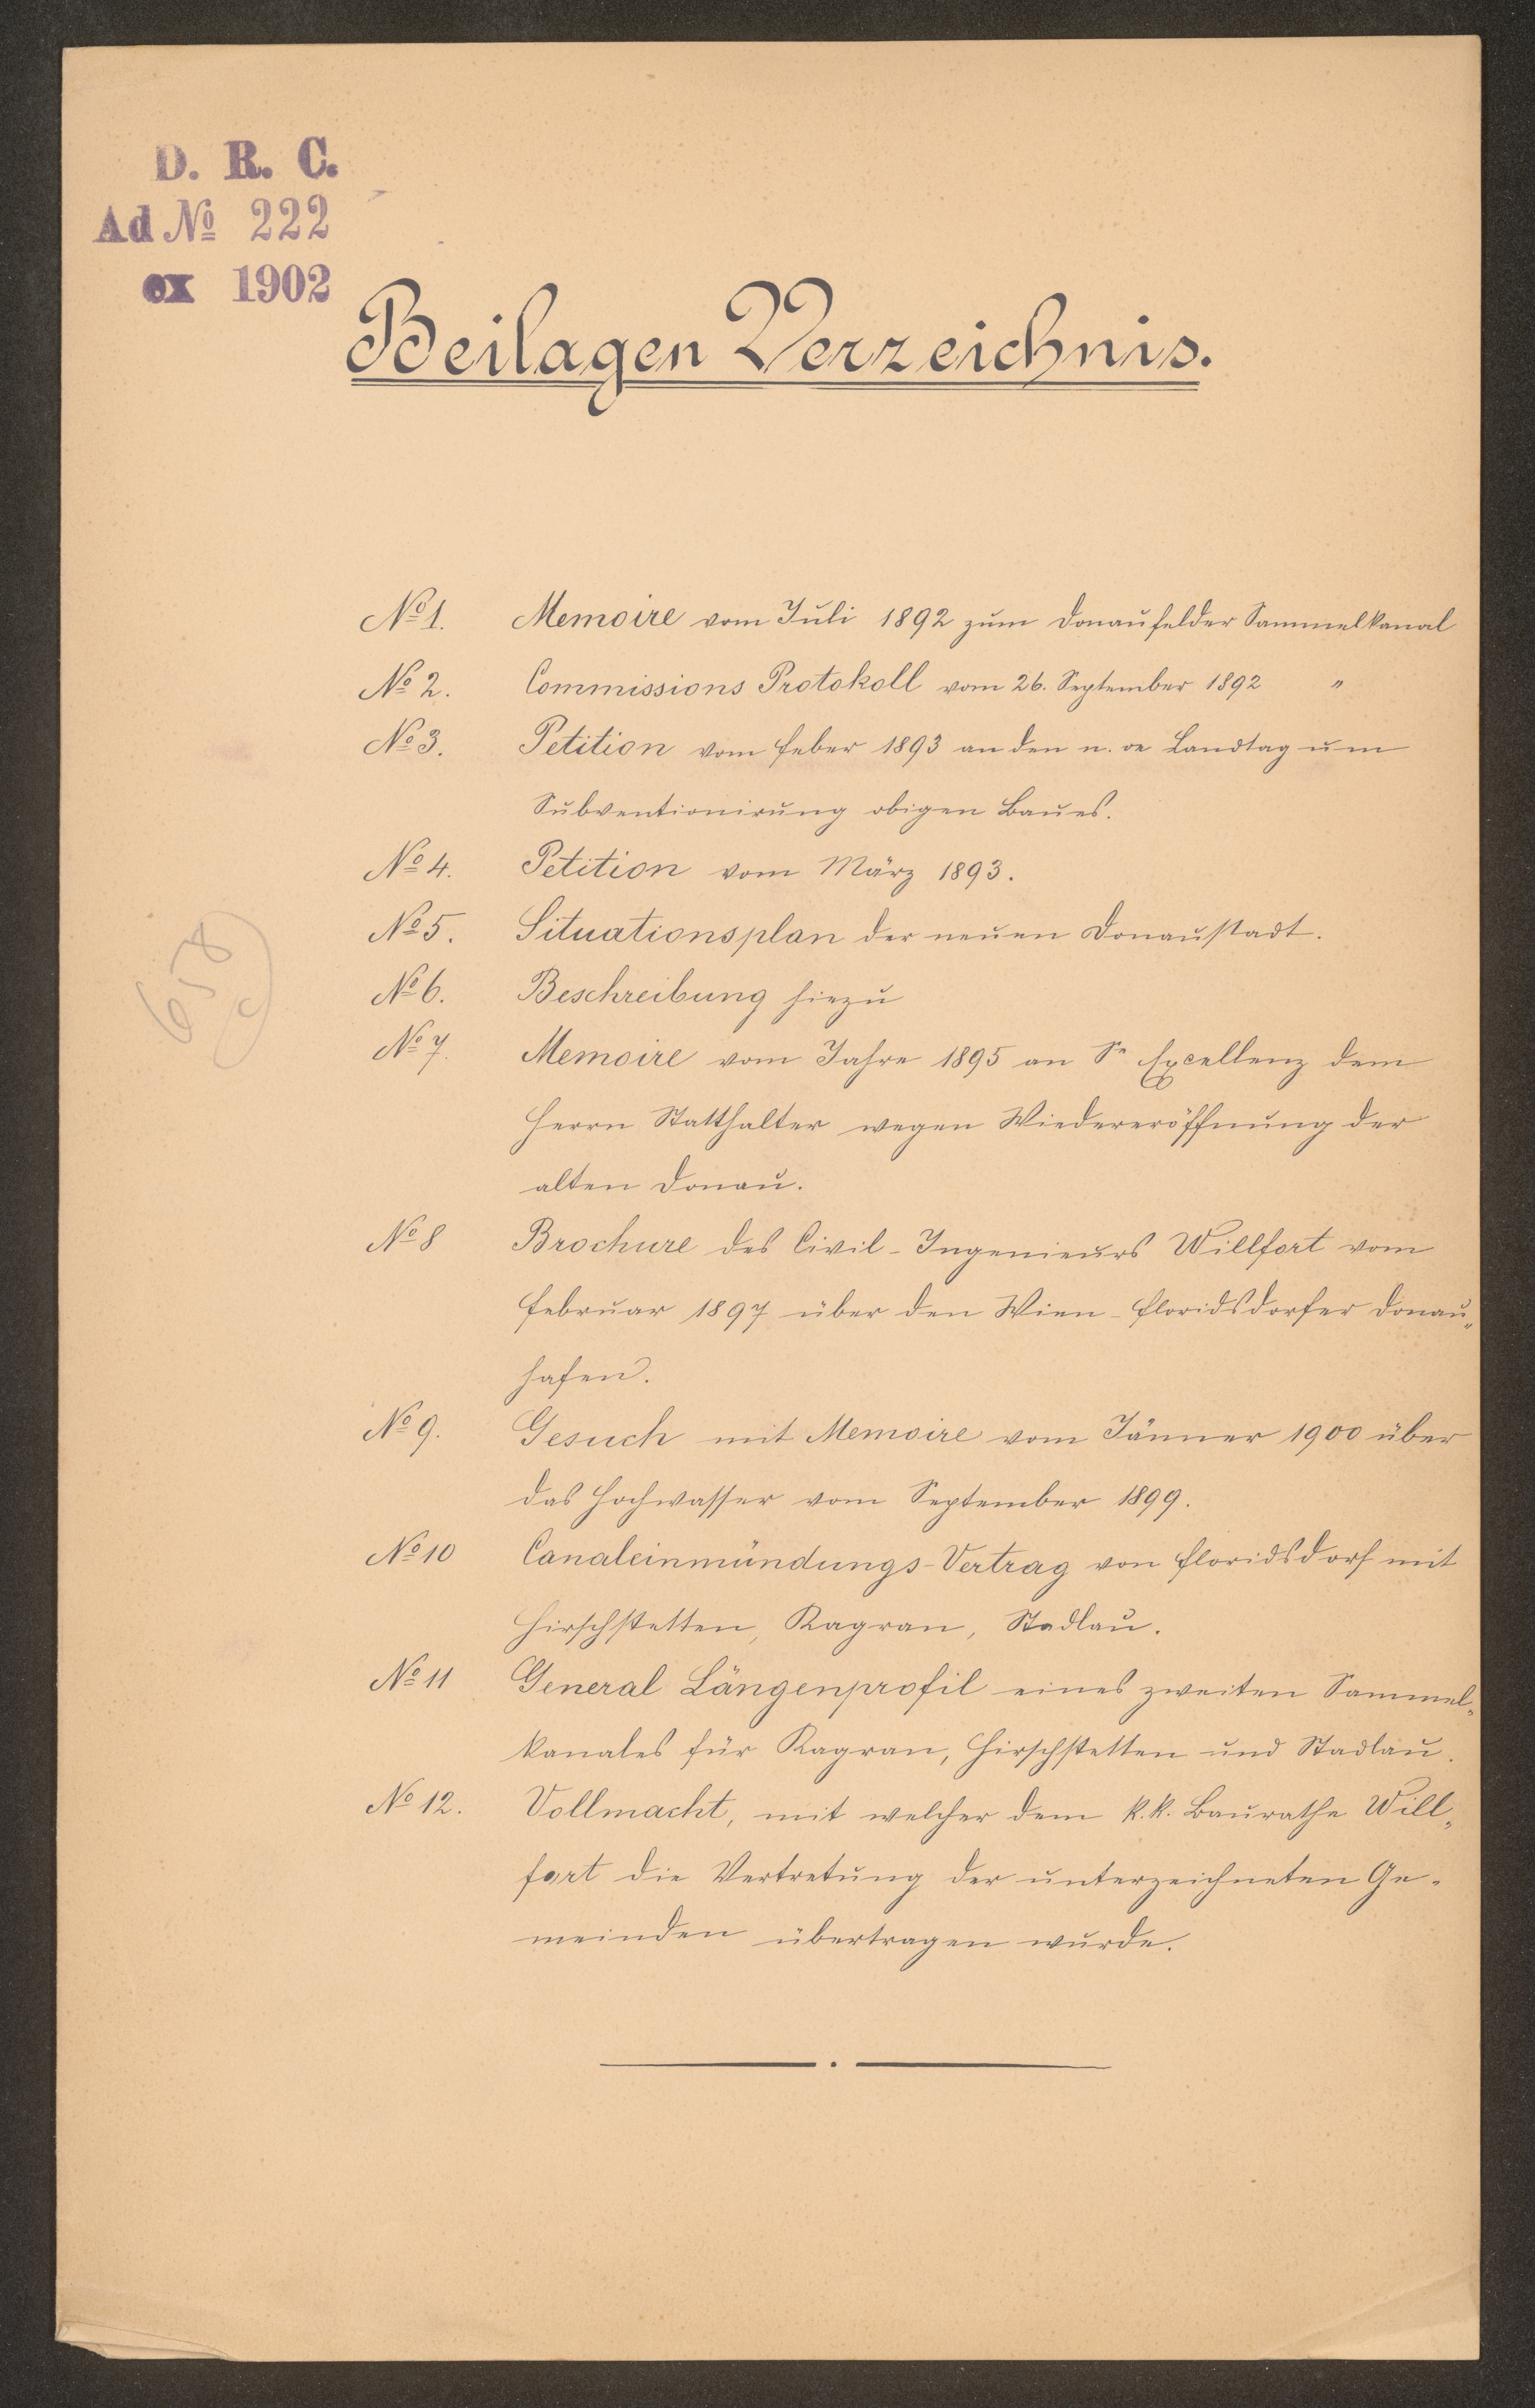 D. R. C.
Ad № 222
ex 1902
Beilagen Verzeichnis.
№ 1. Memoire vom Juli 1892 zum Donaufelder Sammelkanal
№ 2. Commissions Protokoll vom 26. September 1892 "
№ 3. Petition vom Feber 1893 an den n. oe Landtag um
Subventionirung obigen Baues.
№ 4. Petition vom März 1893.
№ 5. Situationsplan der neuen Donaustadt.
№ 6. Beschreibung hiezu
№ 7. Memoire vom Jahre 1895 an Se Excellenz dem
Herrn Statthalter wegen Wiedereröffnung der
alten Donau.
№ 8 Brochure des Civil-Ingenieurs Willfort vom
Februar 1897 über den Wien-Floridsdorfer Donau„
hafen.
№ 9. Gesuch mit Memoire vom Jänner 1900 über
das Hochwasser vom September 1899.
№ 10 Canaleinmündungs-Vertrag von Floridsdorf mit
Hirschstetten, Kagran, Stadlau.
№ 11 General Längenprofil eines zweiten Sammel„
kanales für Kagran, Hirschstetten und Stadlau.
№ 12. Vollmacht, mit welcher dem k.k. Baurathe Will„
fort die Vertretung der unterzeichneten Ge-
meinden übertragen wurde.